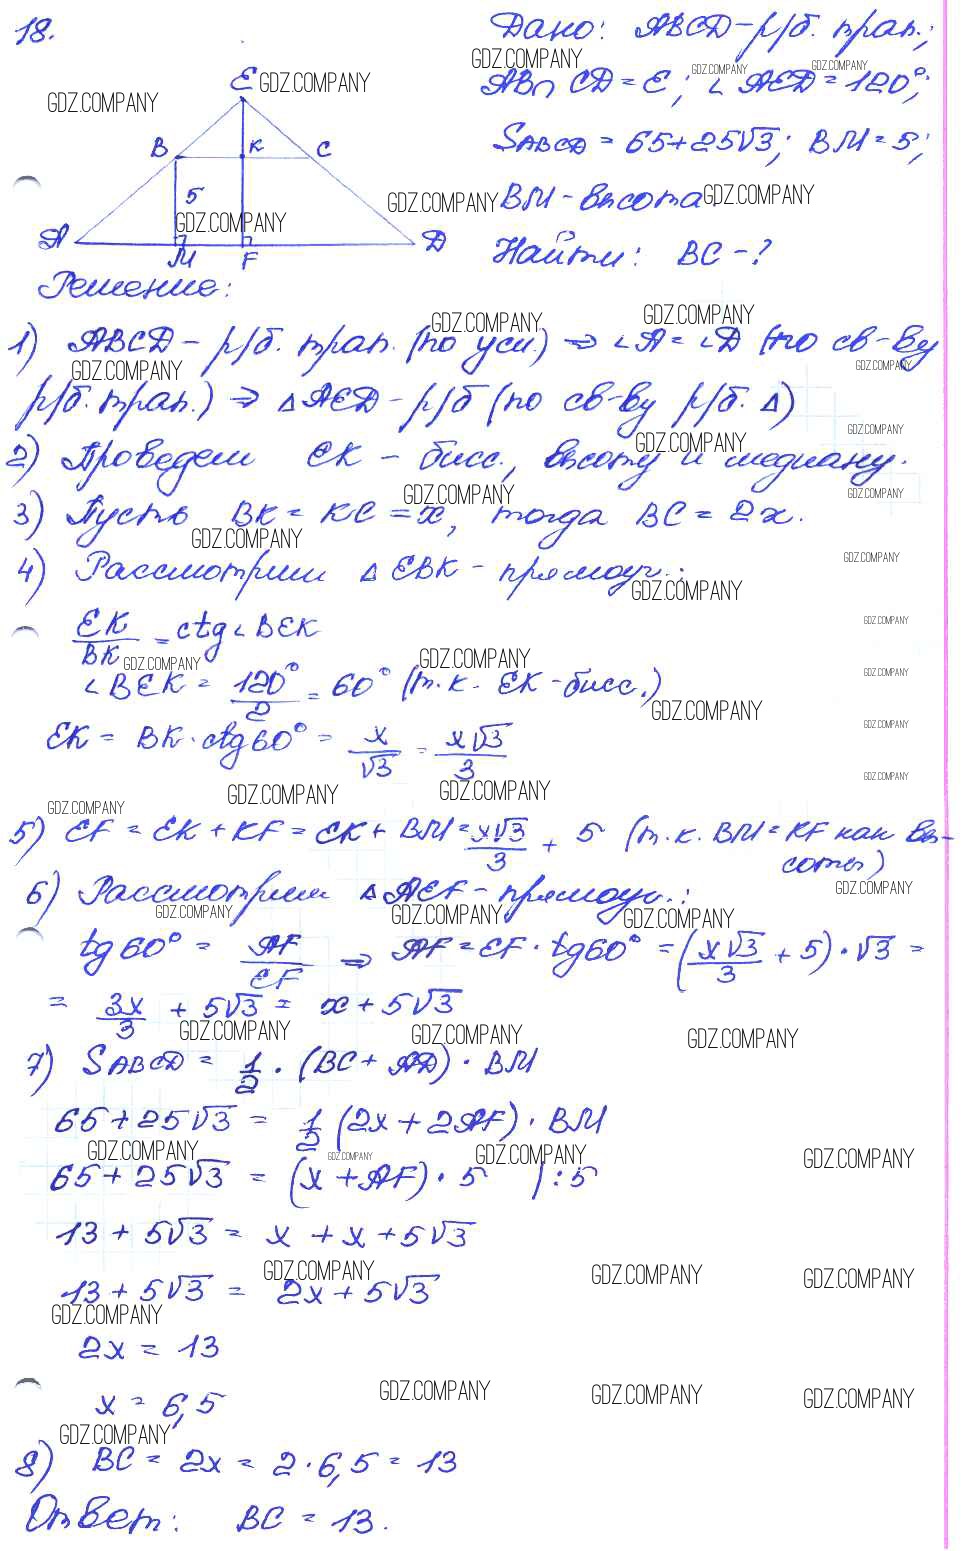 18.
Дано: ABCD - р/б. трап.;
AB∩CD = E; ∠AED = 120°;
S_ABCD = 65+25√3; BM = 5;
BM - высота
Найти: BC - ?
E
B K C
5
A M F D
Решение:
1) ABCD - р/б. трап. (по усл.) ⇒ ∠A = ∠D (по св-ву
р/б. трап.) ⇒ △AED - р/б (по св-ву р/б. △)
2) Проведем EK - бисс., высоту и медиану.
3) Пусть BK = KC = x, тогда BC = 2x.
4) Рассмотрим △EBK - прямоуг.:
EK/BK = ctg∠BEK
∠BEK = 120°/2 = 60° (т.к. EK - бисс.)
EK = BK · ctg60° = x/√3 = x√3/3
5) EF = EK + KF = EK + BM = x√3/3 + 5 (т.к. BM = KF как вы-
соты)
6) Рассмотрим △AEF - прямоуг.:
tg60° = AF/EF ⇒ AF = EF · tg60° = (x√3/3 + 5) · √3 =
= 3x/3 + 5√3 = x + 5√3
7) S_ABCD = 1/2 · (BC + AD) · BM
65 + 25√3 = 1/2 (2x + 2AF) · BM
65 + 25√3 = (x + AF) · 5 | : 5
13 + 5√3 = x + x + 5√3
13 + 5√3 = 2x + 5√3
2x = 13
x = 6,5
8) BC = 2x = 2 · 6,5 = 13
Ответ: BC = 13.
GDZ.COMPANY